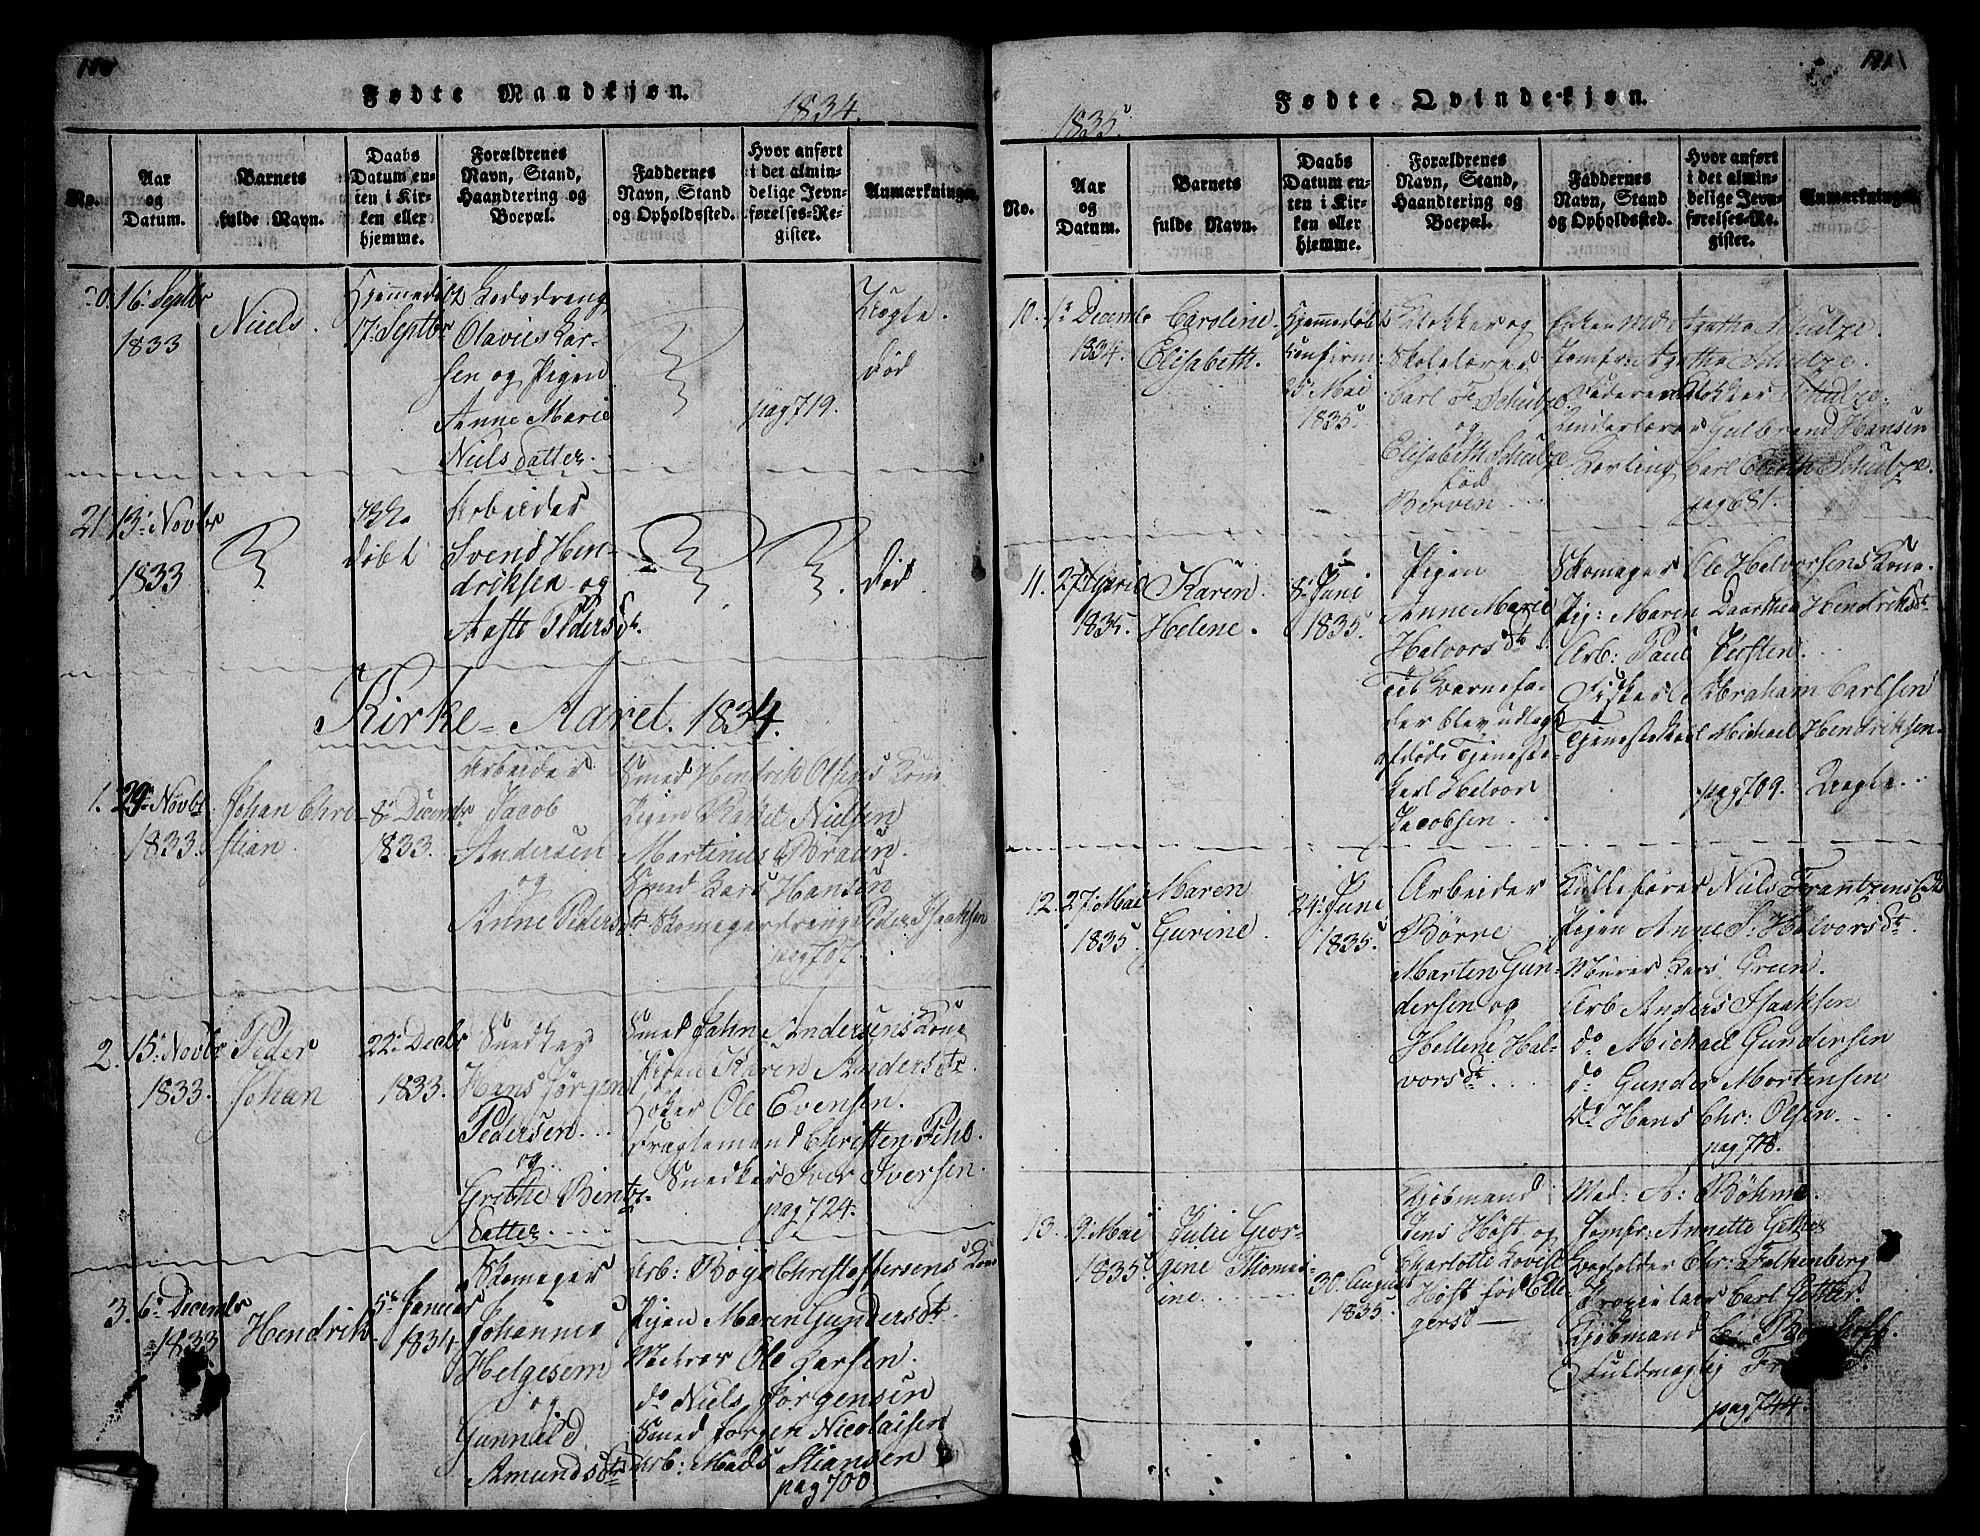 180
Fødte Mandkjøn.
1834.
No.
Aar
og
Datum.
Barnets
fulde Navn.
Daabs
Datum en-
ten i Kir-
ken eller
hjemme.
Forældrenes
Navn, Stand,
Haandtering og
Boepæl.
Faddernes
Navn, Stand
og Opholdssted.
Hvor anført
i det almin-
delige Jevn-
førelses-Re-
gister.
Anmærkninger.
20. 16. Septbr
1833
Niels.
Hjemmedøbt
17. Septbr
Ledsdreng
Olavies Lar-
sen og Pigen
Anne Marie
Niels datter.
pag 719.
Uægte.
død
21. 13. Novbr
1833
døbt
Arbeider
Svend Hen-
driksen og
Aaste Pedersdt.
død
Kirke-Aaret. 1834.
1. 29. Novbr
1833.
Johan Chri-
stian
8. Decembr
1833.
Arbeider
Jacob
Andersen
og
Anne Pedersdt
Smed Hendrik Olsens Kone
Pigen Rakel Nielsen
Martinius Braun.
Smed Lars Hansen
Skomagerdreng Peder Isaaksen
pag 707.
2. 15. Novbr
1833.
Peder
Johan
22. Decbr
1833.
Snedker
Hans Jørgen
Pedersen
og
Grethe Bentz-
datter
Smed Jahn Andersens Kone
Pigen Karen Andersdtr.
Ole Evensen.
Fragtemand Christen Pihl.
Snedker Iver Iversen.
pag 724.
3. 6. Decembr
1833
Hendrik
5. Januar
1834
Skomager
Johannes
Helgesen
og
Gunnild
Amundsdtr
Arb: Børge Christoffersens Kone
Pigen Maren Gundersdt.
Murer Ole Larsen.
do Niels Jørgensen
Smed Jørgen Nicolaisen
Arb: Mads Stiansen
pag 700
181
Fødte Qvindekjøn.
1835.
No.
Aar
og
Datum.
Barnets
fulde Navn.
Daabs
Datum en-
ten i Kir-
ken eller
hjemme.
Forældrenes
Navn, Stand,
Haandtering og
Boepæl.
Faddernes
Navn, Stand
og Opholdssted.
Hvor anført
i det almin-
delige Jevn-
førelses-Re-
gister.
Anmærkninger.
10. 1. Decembr
1834.
Caroline
Elisabeth.
Hjemmedøbt
Confirm:
25. Mai
1835.
Klokker og
Skolelærer
Carl Fr. Schulze
og
Elisabeth Schulze
fød
Berven
Enken Md. Agatha Schulze.
Jomfr: Agatha Schulze.
Faderen Klokker Schulze.
Underlærer Gulbrand Hansen
Carl Schulze.
pag 681.
11. 27. April
1835.
Karen
Helene.
8. Juni
1835.
Pigen
Anne Marie
Halvorsdt.
Til Barnefa-
der blev udlagt
afdøde Tjeneste-
karl Halvor
Jacobsen.
Skomager Ole Halvorsens Kone.
Pig: Maren Daarthea Hendriksdt.
Arb: Paul Persten.
Fisker Abraham Carlsen
Tjenestekarl Michael Hendriksen.
pag 709.
Uægte.
12. 27. Mai
1835.
Maren
Gurine
24. Juni
1835.
Arbeider
Børre
Marten Gun-
dersen og
Hellene Hal-
vorsdt.
Kullefører Niels Frantzens
Pigen Anne S: Halvorsdt.
Murer Lars Green.
Arb Anders Isaaksen
do Michael Gundersen
do Gunder Mortensen
do Hans Chr: Olsen.
pag 718.
13. 9. Mai
1835.
Julie Geor-
gine Thoma-
ine.
30. August
1835.
Kjøbmand
Jens Høst og
Charlotte Lovise
Høst fød Elle-
gers
Mad: A: Bøhme.
Jomfr: Annette Getter
Bogholder Chr: Falkenberg
Procurator Carl Getter.
Kjøbmand
Fuldmægtig
pag 744.